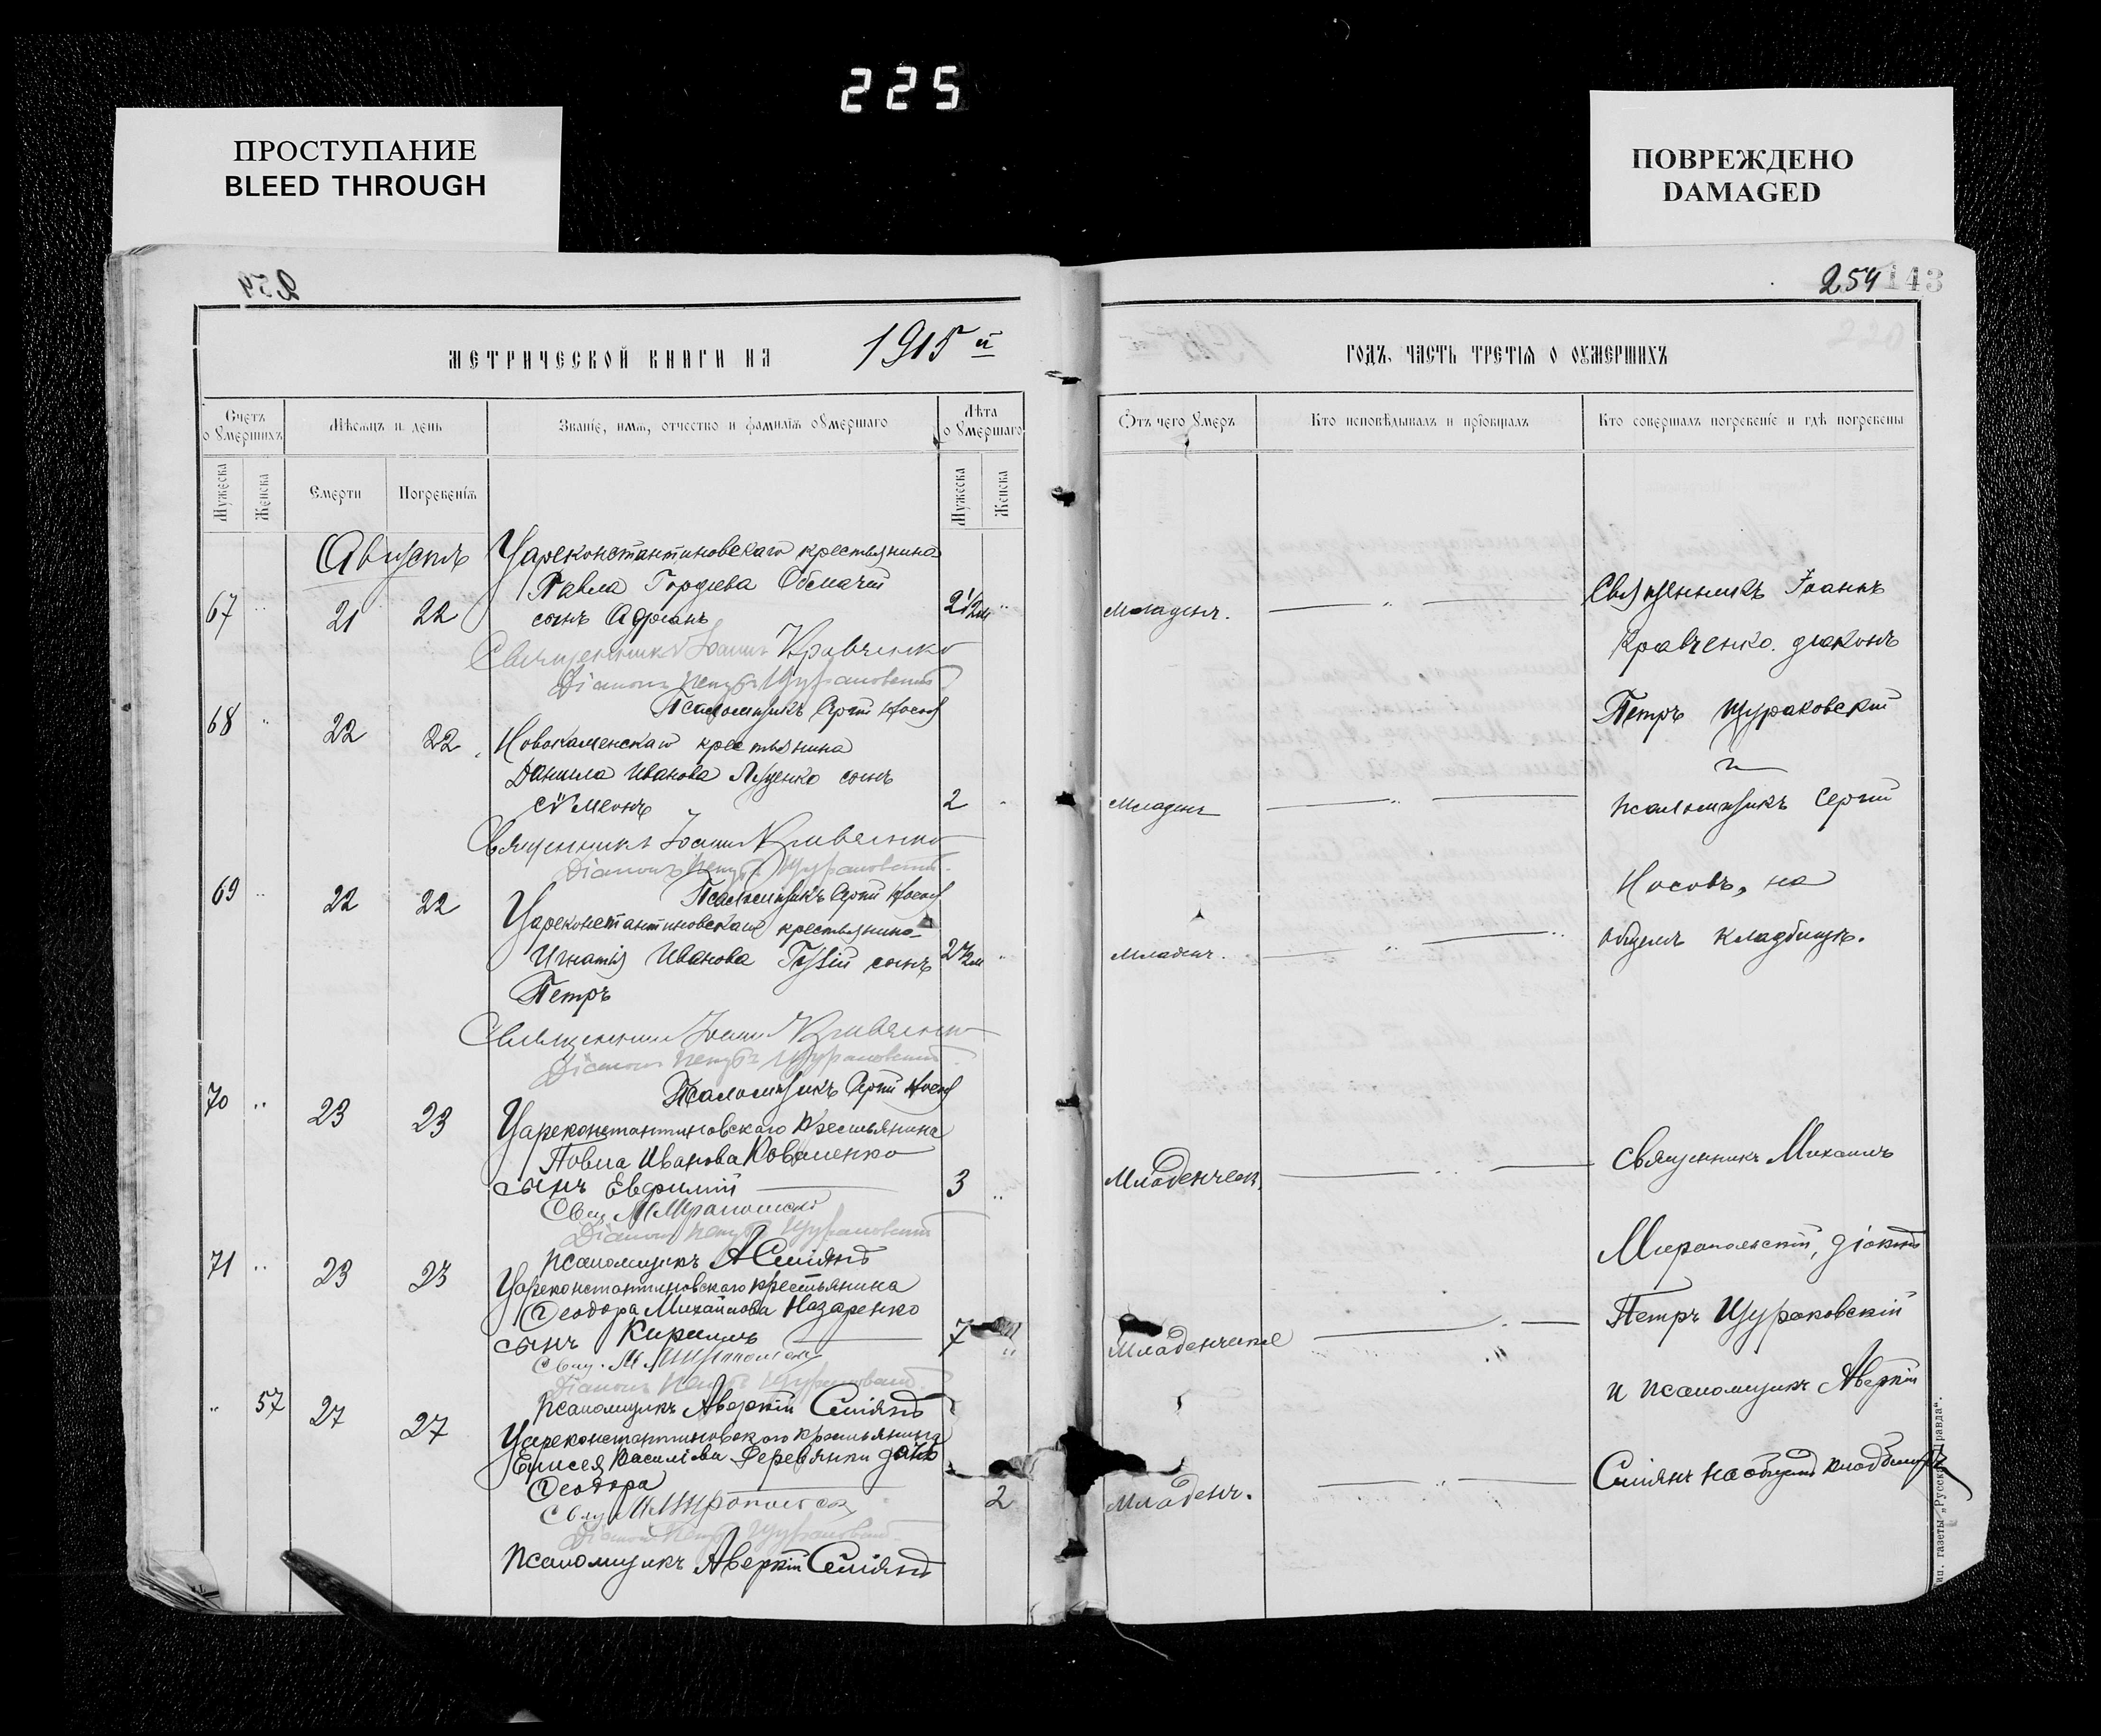 225
ПРОСТУПАНИЕ
BLEED THROUGH
ПОВРЕЖДЕНО
DAMAGED
254
143
МЕТРИЧЕСКОЙ КНИГИ НА 1915й ГОДЪ, ЧАСТЬ ТРЕТІЯ О ОУМЕРШИХЪ
Счетъ оумершихъ
Мѣсяцъ и день
Званіе, имя, отчество и фамилія оумершаго
Лѣта оумершаго
Отъ чего умеръ
Кто исповѣдывалъ и пріобщалъ
Кто совершалъ погребеніе и гдѣ погребены
Мужеска
Женска
Смерти
Погребенія
Мужеска
Женска
Августъ
Цареконстантиновскаго крестьянина
Павла Гордіева
67 " 21 22 сынъ Адріанъ 2 1/2 м " Младенч.
Священникъ Іоаннъ Кравченко
Діаконъ Петръ Щураковскій
Псаломщикъ Сергій Носовъ
68 " 22 22 Новокаменскаго крестьянина
Даніила Иванова Луценко сынъ
Сѵмеонъ 2 " Младенч
Священникъ Іоаннъ Кравченко
Діаконъ Петръ Щураковскій
Псаломщикъ Сергій Носовъ
69 " 22 22 Цареконстантиновскаго крестьянина
Игнатія Иванова сынъ " Младенч.
Петръ
Священникъ Іоаннъ Кравченко
Діаконъ Петръ Щураковскій
Псаломщикъ Сергій Носовъ
Священникъ Іоаннъ
Кравченко, діаконъ
Петръ Щураковскій
и
псаломщикъ Сергій
Носовъ, на
общемъ кладбищѣ.
70 " 23 23 Цареконстантиновскаго крестьянина
Павла Иванова Коваленко
сынъ Евфимій 3 " Младенческ.
Свящ. М. Миропольскій
Діаконъ Петръ Щураковскій
псаломщикъ А Симіянъ
71 " 23 23 Цареконстантиновскаго крестьянина
Ѳеодора Михайлова Назаренко
сынъ Кириллъ 7 " Младенческ
Свящ. М. Миропольскій
Діаконъ Петръ Щураковскій
псаломщикъ Аверкій Симіянъ
" 57 27 27 Цареконстантиновскаго крестьянина
Елисея Василіева Деревянки дочь
Ѳеодора 2 Младенч.
Свящ. М. Миропольскій
Діаконъ Петръ Щураковскій
псаломщикъ Аверкій Симіянъ
Священникъ Михаилъ
Миропольскій, діаконъ
Петръ Щураковскій
и псаломщикъ Аверкій
Симіянъ на общемъ кладбищѣ
Тип. газеты „Русская Правда“.